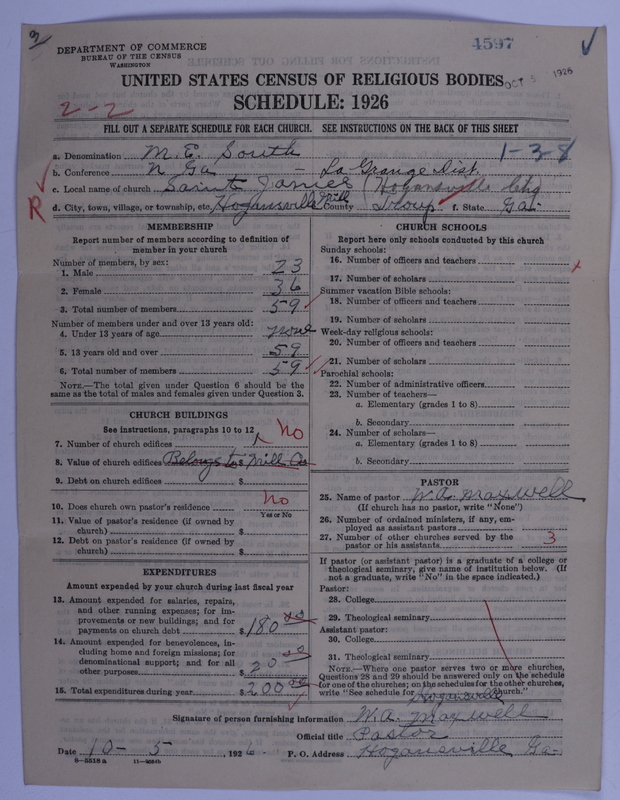 DEPARTMENT OF COMMERCE
BUREAU OF THE CENSUS
WASHINGTON
4597
UNITED STATES CENSUS OF RELIGIOUS BODIES
OCT 1926
SCHEDULE: 1926
2-2
FILL OUT A SEPARATE SCHEDULE FOR EACH CHURCH. SEE INSTRUCTIONS ON THE BACK OF THIS SHEET
a. Denomination M. E. South 1-3-8
b. Conference N Ga - La Grange Dist.
c. Local name of church Saint James (Hogansville Chg
R
d. City, town, village, or township, etc. Hogansville Mill County Troup f. State Ga.
MEMBERSHIP
Report number of members according to definition of member in your church
Number of members, by sex:
1. Male 23
2. Female 36
3. Total number of members 59
Number of members under and over 13 years old:
4. Under 13 years of age none
5. 13 years old and over 59
6. Total number of members 59
NOTE.—The total given under Question 6 should be the same as the total of males and females given under Question 3.
CHURCH BUILDINGS
See instructions, paragraphs 10 to 12
7. Number of church edifices 1 No
8. Value of church edifices Belongs to $ Mill Co
9. Debt on church edifices $
10. Does church own pastor's residence No
Yes or No
11. Value of pastor's residence (if owned by church) $
12. Debt on pastor's residence (if owned by church) $
EXPENDITURES
Amount expended by your church during last fiscal year
13. Amount expended for salaries, repairs, and other running expenses; for improvements or new buildings; and for payments on church debt $ 180 00
14. Amount expended for benevolences, including home and foreign missions; for denominational support; and for all other purposes $ 20 00
15. Total expenditures during year $ 200 00
CHURCH SCHOOLS
Report here only schools conducted by this church
Sunday schools:
16. Number of officers and teachers x
17. Number of scholars
Summer vacation Bible schools:
18. Number of officers and teachers
19. Number of scholars
Week-day religious schools:
20. Number of officers and teachers
21. Number of scholars
Parochial schools:
22. Number of administrative officers
23. Number of teachers—
a. Elementary (grades 1 to 8)
b. Secondary
24. Number of scholars—
a. Elementary (grades 1 to 8)
b. Secondary
PASTOR
25. Name of pastor W. A. Maxwell
(If church has no pastor, write "None")
26. Number of ordained ministers, if any, employed as assistant pastors
27. Number of other churches served by the pastor or his assistants 3
If pastor (or assistant pastor) is a graduate of a college or theological seminary, give name of institution below. (If not a graduate, write "No" in the space indicated.)
Pastor:
28. College
29. Theological seminary
Assistant pastor:
30. College
31. Theological seminary
NOTE.—Where one pastor serves two or more churches, Questions 28 and 29 should be answered only on the schedule for one of the churches; on the schedules for the other churches, write "See schedule for Hogansville church."
Signature of person furnishing information W. A. Maxwell
Official title Pastor
Date 10-5, 1926. P. O. Address Hogansville Ga-
8-5518a